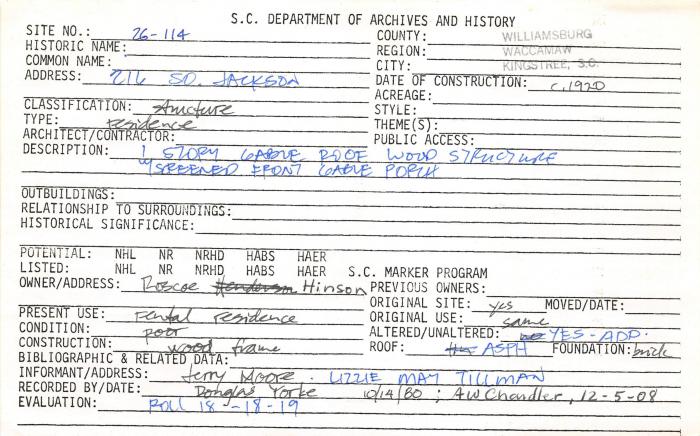 S.C. DEPARTMENT OF ARCHIVES AND HISTORY
SITE NO.: 26-114 COUNTY: WILLIAMSBURG
HISTORIC NAME: REGION: WACCAMAW
COMMON NAME: CITY: KINGSTREE, S.C.
ADDRESS: 216 SO. JACKSON DATE OF CONSTRUCTION: c.1920
ACREAGE:
CLASSIFICATION: structure STYLE:
TYPE: residence THEME(S):
ARCHITECT/CONTRACTOR: PUBLIC ACCESS:
DESCRIPTION: 1 STORY GABLE ROOF WOOD STRUCTURE
W/SREENED FRONT GABLE PORCH
OUTBUILDINGS:
RELATIONSHIP TO SURROUNDINGS:
HISTORICAL SIGNIFICANCE:
POTENTIAL: NHL NR NRHD HABS HAER
LISTED: NHL NR NRHD HABS HAER S.C. MARKER PROGRAM
OWNER/ADDRESS: Roscoe Henderson Hinson PREVIOUS OWNERS:
ORIGINAL SITE: yes MOVED/DATE:
PRESENT USE: rental residence ORIGINAL USE: same
CONDITION: poor ALTERED/UNALTERED: YES-ADD.
CONSTRUCTION: wood frame ROOF: ASPH FOUNDATION: brick
BIBLIOGRAPHIC & RELATED DATA:
INFORMANT/ADDRESS: Jerry Moore. LIZZIE MAY TILLMAN
RECORDED BY/DATE: Douglas Yorke 10/14/80 ; AW Chandler, 12-5-08
EVALUATION: ROLL 18 -18-19